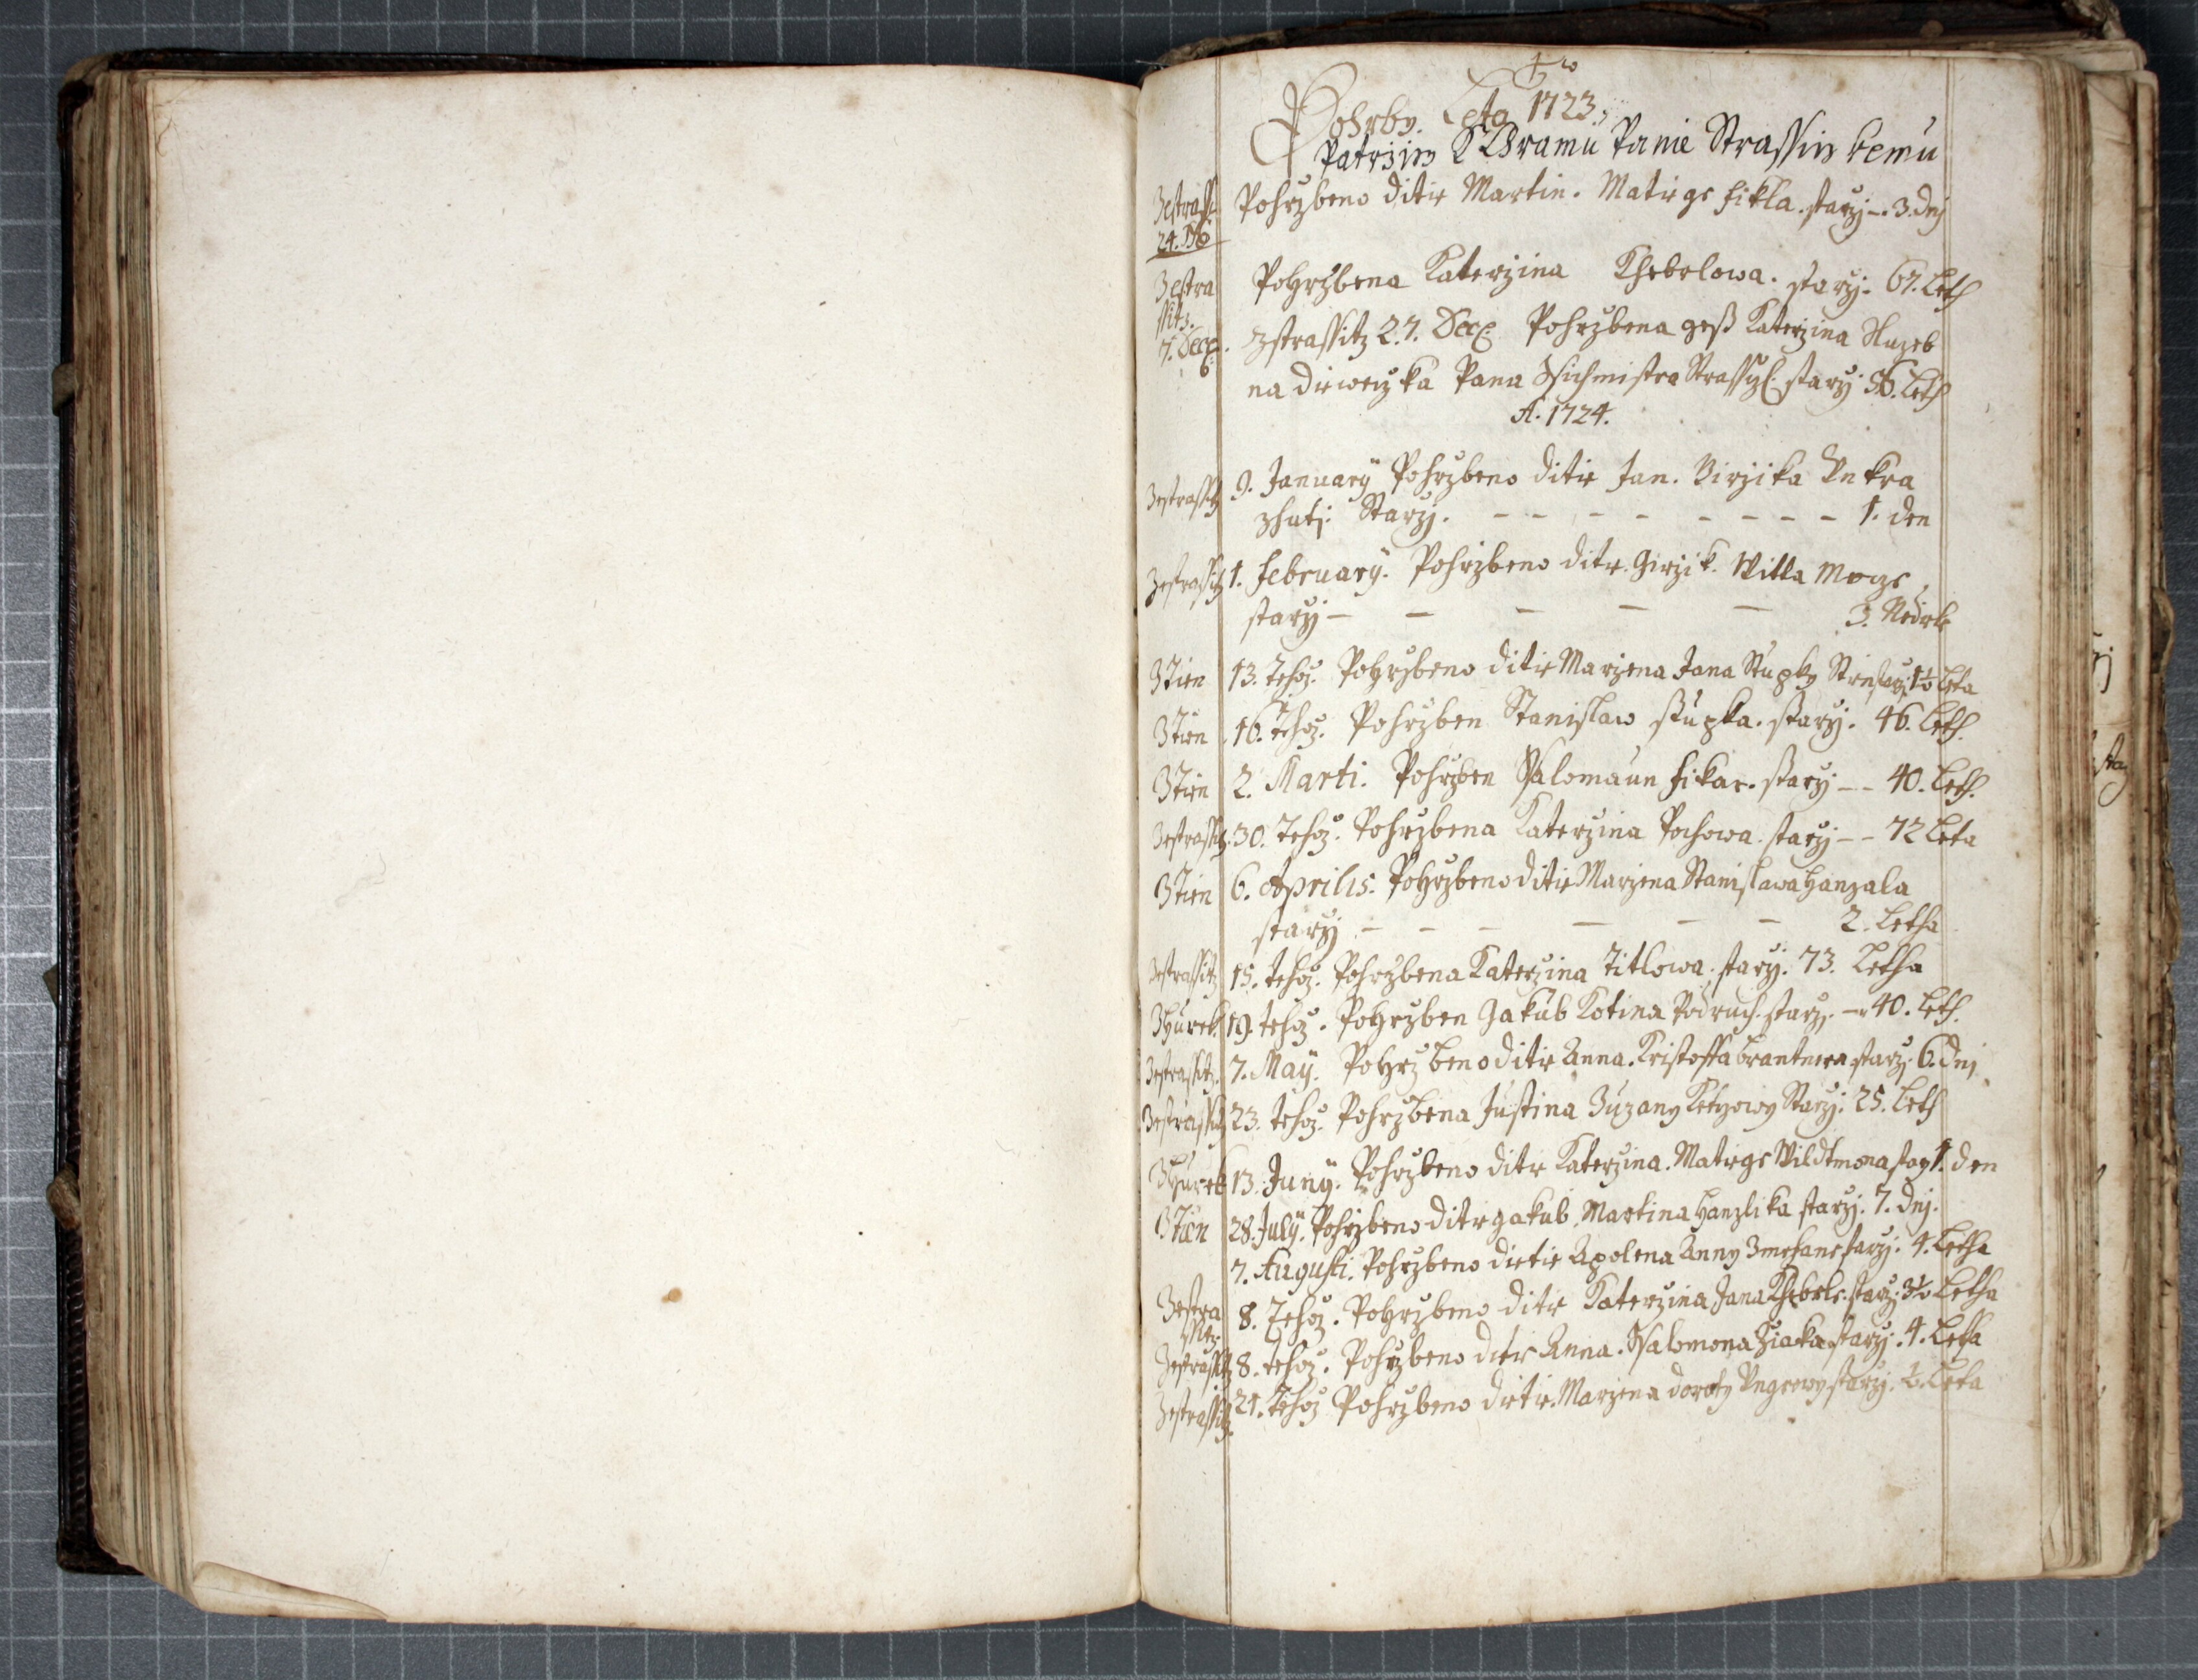 Pohrby. Leta 1723.
Patrziczy K Chramu Panie Strassiczkemu
Zestrass. Pohrzbeno ditie Martin. Matiege Fikla. starzj -. 3. dnj
24. 9b
Zestra Pohrzbena Katerzina Chebelowa. starzj. 67. Leth
ssitz. 7. Decē. Zstrassitz 27. Decē. Pohrzbena gest Katerzina Sluzeb
na diewczka Pana Strassytz. starzj. 56. Leth
A. 1724.
Zestrassitz 9. January Pohrzbeno ditie Jan. Girzika
Starzj. - - - - - - - - - 1. den
Zestrassitz 1. February. Pohrzbeno ditie. Girzik. Willa
starzj - - - - - 3. Nedele
Ztien 13. Tehoz. Pohrzbeno ditie Marzena Jana Stupky starzj 1½ Leta
Ztien 16. Tehoz. Pohrzben Stanislaw stupka. starzj. 46. Leth.
Ztien 2. Marti. Pohrzben Ssalomaun Fikar. starzj - - 40. Leth.
Zestrassitz. 30. Tehoz. Pohrzbena Katerzina Pochowa. starzj - - 72 Leta
Ztien 6. Aprilis. Pohrzbeno ditie Marzena Stanislawa Hanzala
starzj - - - - - - 2. Letha
Zestrassitz 15. tehoz. Pohrzbena Katerzina Titlowa. starzj. 73. Letha
Zhurek 19. tehoz. Pohrzben Jakub Kotina Podruch. starzj. - 40. Leth.
Zestrassitz. 7. May. Pohrzbeno ditie Anna. Kristoffa brantnera starzj. 6. dnj
Zestrassitz 23. tehoz. Pohrzbena Justina Zuzany Starzj. 25. Leth
Zhurek 13. Juny. Pohrzbeno ditie Katerzina. Matiege Wildtmona starzj 1. den
Ztien 28. July. Pohrzbeno ditie Jakub. Martina Hanzlika starzj. 7. dnj.
7. Augusti. Pohrzbeno dietie Apolena Anny starzj. 4. Letha
Zestra 8. Tehoz. Pohrzbeno ditie Katerzina Jana Chebele. starzj. 3½ Letha
ssitz.
Zestrassitz 8. tehoz. Pohrzbeno ditie Anna. Ssalomona Ziaka. starzj. 4. Letha
Zestrassitz. 21. Tehoz Pohrzbeno dietie. Marzena doroty starzj. ½. Leta